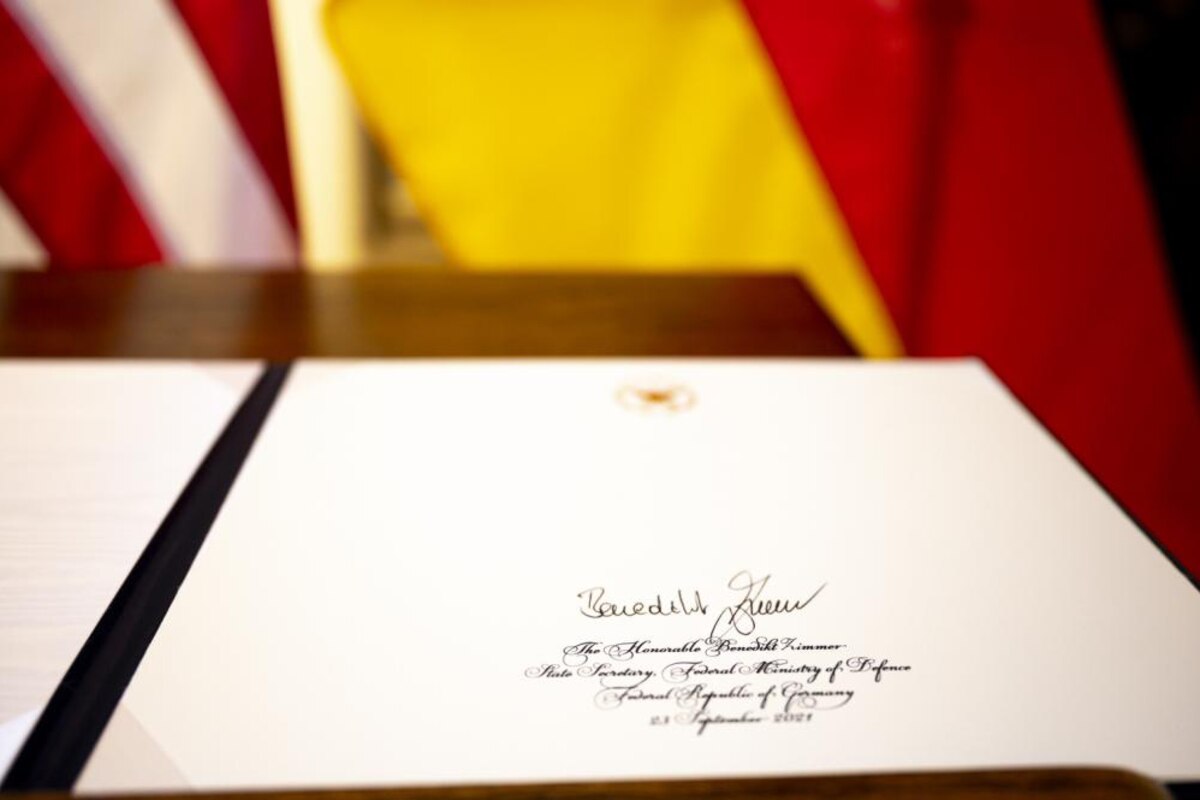 Benedikt Zimmer
The Honorable Benedikt Zimmer
State Secretary, Federal Ministry of Defence
Federal Republic of Germany
September 2021